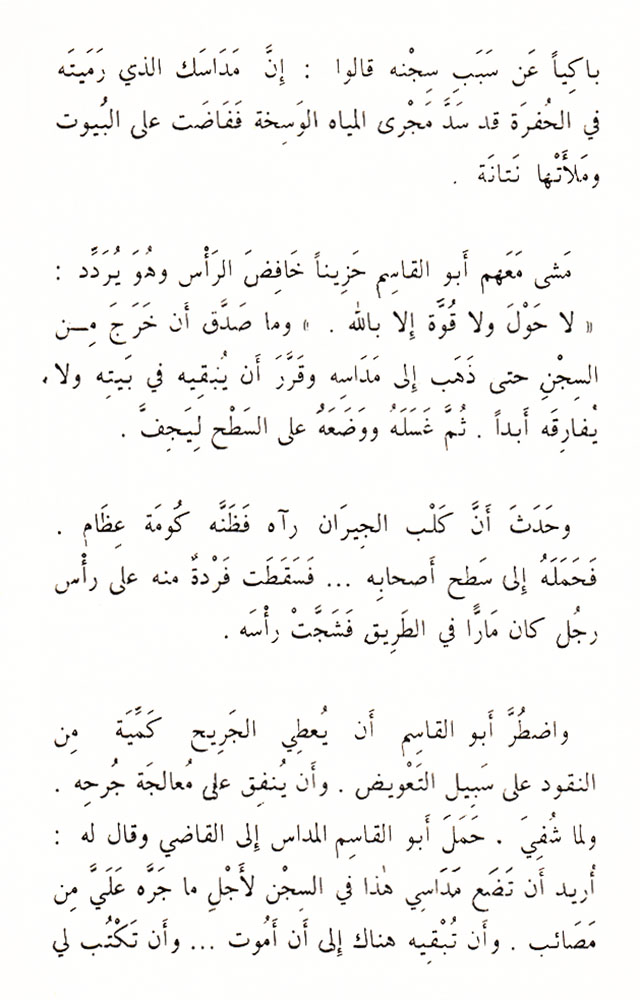 باكِياً عَن سَبَبِ سِجْنه قالوا : إِنَّ مَدَاسَك الذي رَمَيتَه
في الحُفرَة قد سَدَّ مَجْرى المياه الوَسِخة فَفَاضَت على البُيوت
ومَلأَتْها نَتانَة .
مَشى مَعَهم أَبو القاسِم حَزِيناً خَافِضَ الرَأْس وهُوَ يُرَدَّد :
« لا حَوْلَ ولا قُوَّة إِلا بالله . » وما صَدَّق أَن خَرَجَ مِـن
السِجْنِ حتى ذَهَب إِلى مَدَاسِه وقَرَّرَ أَن يُبقِيه في بَيتِه ولا
يُفارِقَه أَبداً . ثُمَّ غَسَلَهُ ووَضَعَهُ على السَطْح لِيَجِفَّ .
وحَدَثَ أَنَّ كَلْب الجِيرَان رآه فَظَنَّه كُومَة عِظَامٍ .
فَحَمَلَهُ إِلى سَطح أَصحابِه ... فَسَقَطَت فَرْدةٌ منه على رأْس
رجُل كان مَارًّا في الطَرِيق فَشَجَّتْ رأْسَه .
واضطُرَّ أَبو القاسِم أَن يُعطِي الجَرِيح كَمِّيَة مِن
النقود على سَبِيل التَعْويض . وأَن يُنفِق على مُعالجَة جُرحِه .
ولما شُفِيَ . حَمَلَ أَبو القاسِم المداس إِلى القاضي وقال له :
أُريد أَن تَضَع مَدَاسِي هٰذا في السِجْن لأَجْلِ ما جَرَّه عَلَيَّ مِن
مَصَائب . وأَن تُبْقِيه هناك إِلى أَن أَمُوت ... وأَن تَكْتُب لي